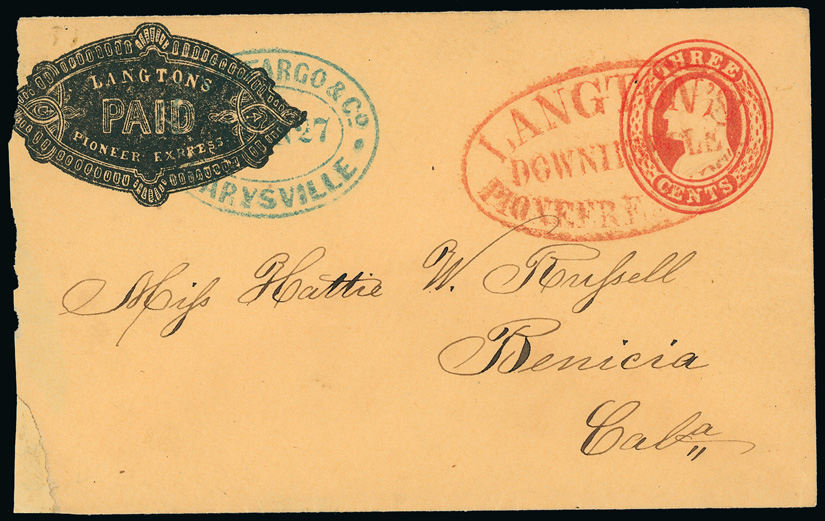 LANGTON'S
PAID
PIONEER EXPRESS
FARGO & Co
27
ARYSVILLE
LANGTON'S
DOWNI LE
PIONEER E
THREE
CENTS
Miss Hattie W. Russell
Benicia
Cala